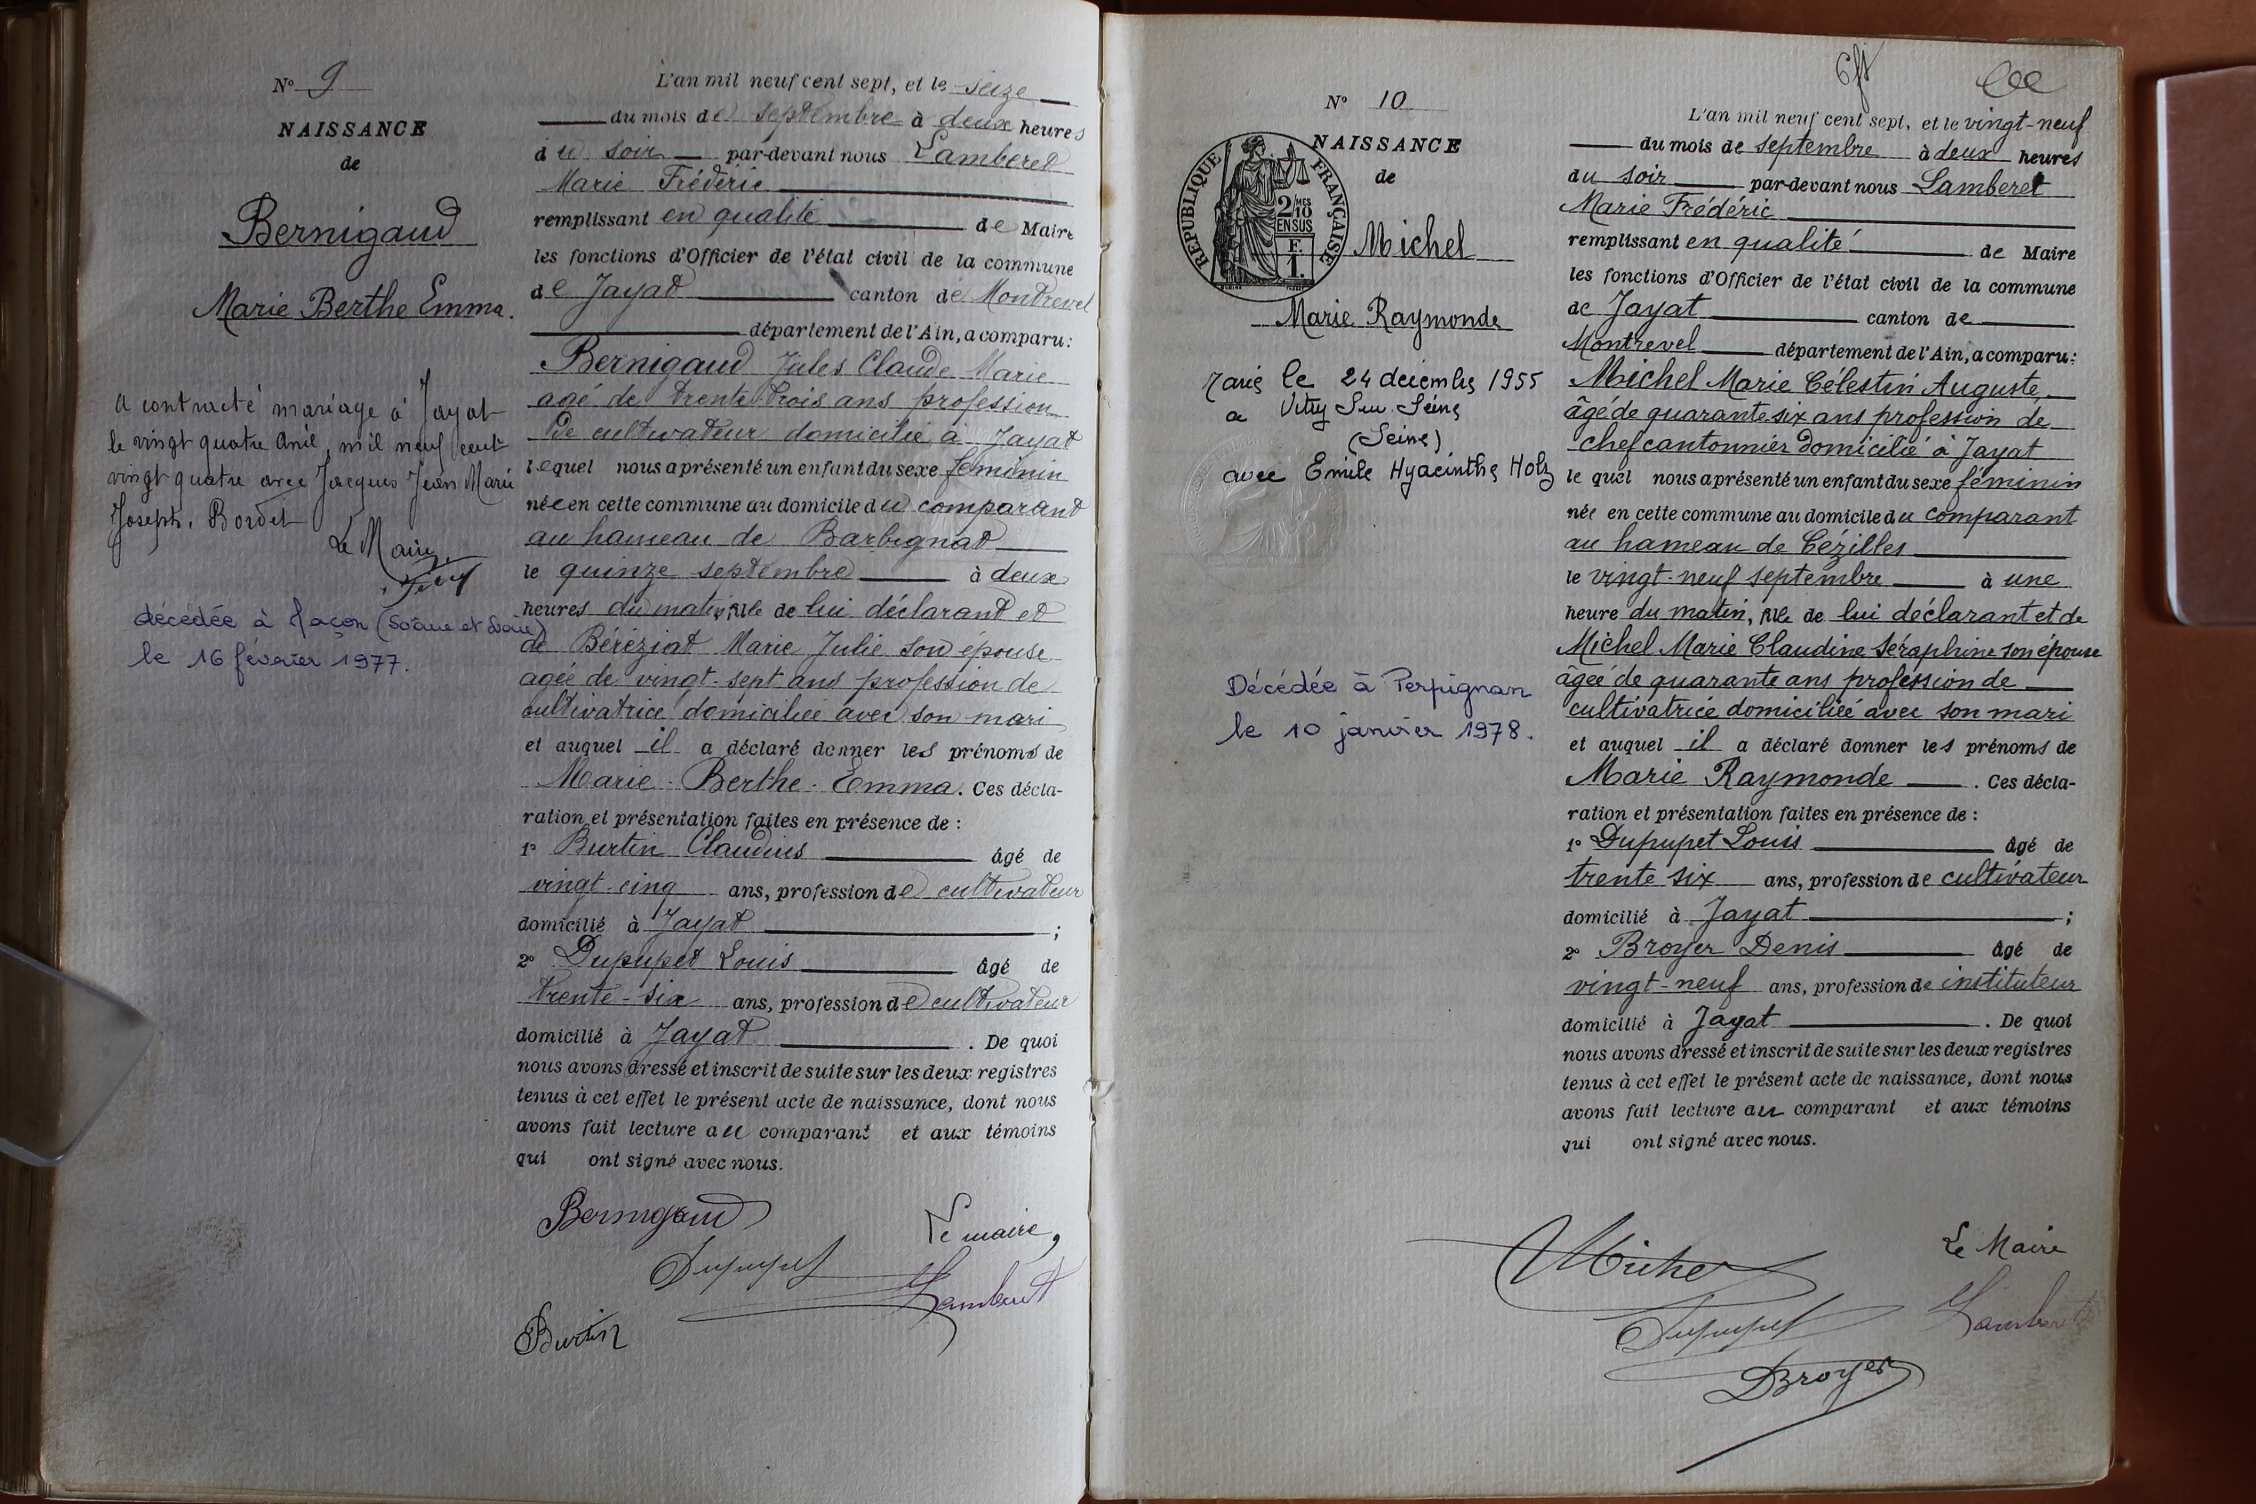 N° 9
NAISSANCE
de
Bernigaud
Marie Berthe Emma.
A contracté mariage à Jayat
le vingt quatre Avril, mil neuf cent
vingt quatre avec Jacques Jean Marie
Joseph. Bordet
Le Maire
décédée à Macon (Saône et Loire)
le 16 février 1977.
L'an mil neuf cent sept, et le seize
du mois de septembre à deux heures
du soir par-devant nous Lamberet
Marie Frédéric
remplissant en qualité de Maire
les fonctions d'Officier de l'état civil de la commune
de Jayat canton de Montrevel
département de l'Ain, a comparu:
Bernigaud Jules Claude Marie
agé de trente trois ans profession
de cultivateur domicilié à Jayat
lequel nous a présenté un enfant du sexe féminin
née en cette commune au domicile du comparant
au hameau de Barbignat
le quinze septembre à deux
heures du matin, fille de lui déclarant et
de Béréziat Marie Julie son épouse
agée de vingt-sept ans profession de
cultivatrice domiciliée avec son mari
et auquel il a déclaré donner les prénoms de
Marie - Berthe - Emma. Ces décla-
ration et présentation faites en présence de :
1° Burtin Claudius âgé de
vingt-cinq ans, profession de cultivateur
domicilié à Jayat ;
2° Dupupet Louis âgé de
trente-six ans, profession de cultivateur
domicilié à Jayat . De quoi
nous avons dressé et inscrit de suite sur les deux registres
tenus à cet effet le présent acte de naissance, dont nous
avons fait lecture au comparant et aux témoins
qui ont signé avec nous.
Bernigaud
Le maire,
Dupupet
Lamberet
Burtin
N° 10
NAISSANCE
de
RÉPUBLIQUE FRANÇAISE
2/10 MES
EN SUS
F.
1.
Michel
Marie Raymonde
Marié le 24 décembre 1955
a Vitry Sur Seine
(Seine)
avec Emile Hyacinthe Holz
Décédée à Perpignan
le 10 janvier 1978.
L'an mil neuf cent sept, et le vingt-neuf
du mois de septembre à deux heures
du soir par-devant nous Lamberet
Marie Frédéric
remplissant en qualité de Maire
les fonctions d'Officier de l'état civil de la commune
de Jayat canton de
Montrevel département de l'Ain, a comparu:
Michel Marie Célestin Auguste,
âgé de quarante six ans profession de
chef cantonnier domicilié à Jayat
le quel nous a présenté un enfant du sexe féminin
née en cette commune au domicile du comparant
au hameau de Cézilles
le vingt-neuf septembre à une
heure du matin, fille de lui déclarant et de
Michel Marie Claudine Séraphine son épouse
âgée de quarante ans profession de
cultivatrice domiciliée avec son mari
et auquel il a déclaré donner les prénoms de
Marie Raymonde . Ces décla-
ration et présentation faites en présence de :
1° Dupupet Louis âgé de
trente six ans, profession de cultivateur
domicilié à Jayat ;
2° Broyer Denis âgé de
vingt-neuf ans, profession de instituteur
domicilié à Jayat . De quoi
nous avons dressé et inscrit de suite sur les deux registres
tenus à cet effet le présent acte de naissance, dont nous
avons fait lecture au comparant et aux témoins
qui ont signé avec nous.
Michel
Le Maire
Dupupet
Lamberet
Broyer